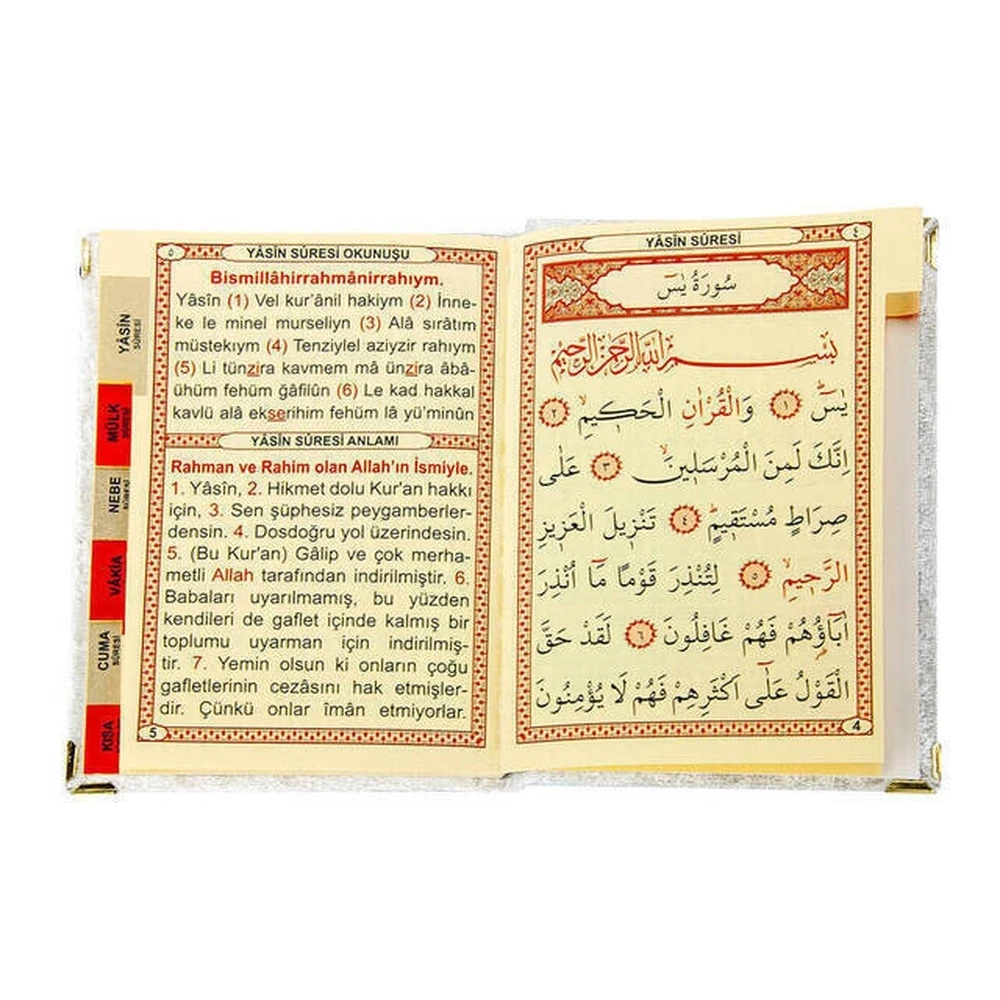 ٥
YÂSİN SÛRESİ OKUNUŞU
Bismillâhirrahmânirrahıym.
Yâsîn (1) Vel kur'ânil hakiym (2) İnne-
ke le minel murseliyn (3) Alâ sırâtım
müstekıym (4) Tenziylel aziyzir rahıym
(5) Li tünzira kavmem mâ ünzira âbâ-
ühüm fehüm ğâfilûn (6) Le kad hakkal
kavlü alâ ekserihim fehüm lâ yü'minûn
YÂSİN SÛRESİ ANLAMI
Rahman ve Rahim olan Allah'ın İsmiyle.
1. Yâsîn, 2. Hikmet dolu Kur'an hakkı
için, 3. Sen şüphesiz peygamberler-
densin. 4. Dosdoğru yol üzerindesin.
5. (Bu Kur'an) Gâlip ve çok merha-
metli Allah tarafından indirilmiştir. 6.
Babaları uyarılmamış, bu yüzden
kendileri de gaflet içinde kalmış bir
toplumu uyarman için indirilmiş-
tir. 7. Yemin olsun ki onların çoğu
gafletlerinin cezâsını hak etmişler-
dir. Çünkü onlar îmân etmiyorlar.
5
YÂSİN SÛRESİ
MÜLK SÛRESİ
NEBE SÛRESİ
VÂKIA
CUMA SÛRESİ
KISA
YÂSİN SÛRESİ
٤
سُورَةُ يٰسٓ
بِسْمِ اللّٰهِ الرَّحْمٰنِ الرَّحِيمِ
يٰسٓ ﴿١﴾ وَالْقُرْاٰنِ الْحَكِيمِۙ ﴿٢﴾
اِنَّكَ لَمِنَ الْمُرْسَلِينَۙ ﴿٣﴾ عَلٰى
صِرَاطٍ مُسْتَقِيمٍۜ ﴿٤﴾ تَنْزِيلَ الْعَزِيزِ
الرَّحِيمِۙ ﴿٥﴾ لِتُنْذِرَ قَوْمًا مَٓا اُنْذِرَ
اٰبَٓاؤُ۬هُمْ فَهُمْ غَافِلُونَ ﴿٦﴾ لَقَدْ حَقَّ
الْقَوْلُ عَلٰٓى اَكْثَرِهِمْ فَهُمْ لَا يُؤْمِنُونَ
4